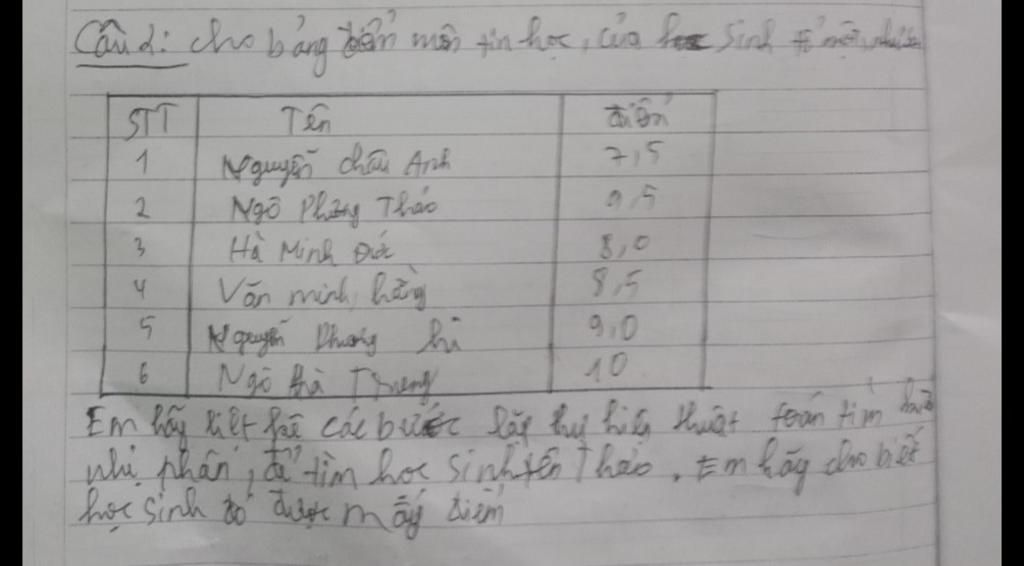 Câu 2: cho bảng điểm môn tin học, của sinh
STT Tên điểm
1 Nguyễn châu Anh 7,5
2 Ngô Phương Thảo 9,5
3 Hà Minh Đức 8,0
4 Văn minh hằng 8,5
5 Nguyễn Phương hà 9,0
6 Ngô Hà Trung 10
Em hãy liệt kê các bước lặp thuật toán tìm
nhị phân, để tìm học sinh tên Thảo. Em hãy cho biết
học sinh đó được mấy điểm